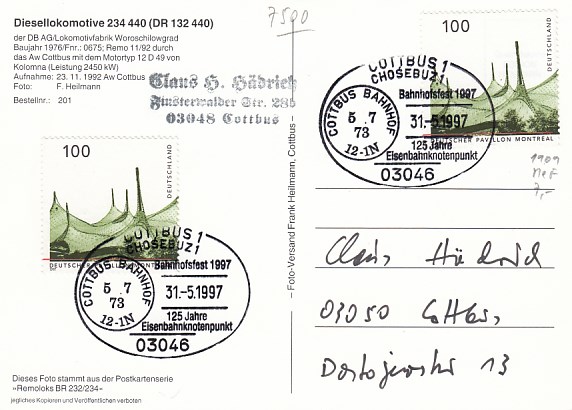 Diesellokomotive 234 440 (DR 132 440)
der DB AG/Lokomotivfabrik Woroschilowgrad
Baujahr 1976/Fnr.: 0675; Remo 11/92 durch
das Aw Cottbus mit dem Motortyp 12 D 49 von
Kolomna (Leistung 2450 kW)
Aufnahme: 23. 11. 1992 Aw Cottbus
Foto: F. Heilmann
Bestellnr.: 201
7500
Claus H. Hädrich
Finsterwalder Str. 28b
03048 Cottbus
100
DEUTSCHLAND
DEUTSCHER PAVILLON MONTREAL
COTTBUS 1
CHOSEBUZ 1
Bahnhofsfest 1997
COTTBUS BAHNHOF
5 7
73
12-1N
31.-5.1997
125 Jahre
Eisenbahnknotenpunkt
03046
100
DEUTSCHLAND
DEUTSCHER PAVILLON MONTREAL
COTTBUS 1
CHOSEBUZ 1
Bahnhofsfest 1997
COTTBUS BAHNHOF
5 7
73
12-1N
31.-5.1997
125 Jahre
Eisenbahnknotenpunkt
03046
– Foto-Versand Frank Heilmann, Cottbus –
1909
MeF
7,-
Claus Hädrich
03050 Cottbus
Dostojewskistr 13
Dieses Foto stammt aus der Postkartenserie
»Remoloks BR 232/234«
jegliches Kopieren und Veröffentlichen verboten